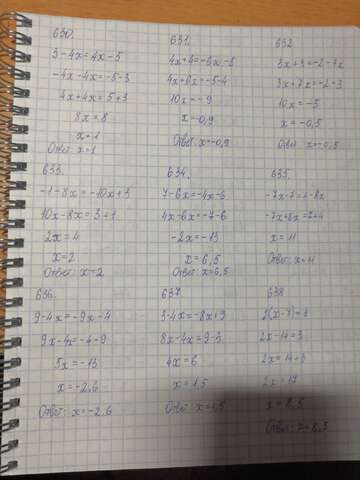 630.
3-4x=4x-5
-4x-4x=-5-3
4x+4x=5+3
8x=8
x=1
Ответ: x=1
631.
4x+4=-6x-5
4x+6x=-5-4
10x=-9
x=-0,9
Ответ: x=-0,9
632
3x+3=-2-7x
3x+7x=-2-3
10x=-5
x=-0,5
Ответ: x=-0,5
633.
-1-8x=-10x+3
10x-8x=3+1
2x=4
x=2
Ответ: x=2
634.
7-6x=-4x-6
4x-6x=-7-6
-2x=-13
x=6,5
Ответ: x=6,5
635.
-7x-7=4-8x
-7x+8x=7+4
x=11
Ответ: x=11
636.
9-4x=-9x-4
9x-4x=-4-9
5x=-13
x=-2,6
Ответ: x=-2,6
637
3-4x=-8x+9
8x-4x=9-3
4x=6
x=1,5
Ответ: x=1,5
638
2(x-7)=3
2x-14=3
2x=14+3
2x=17
x=8,5
Ответ: 7=8,5